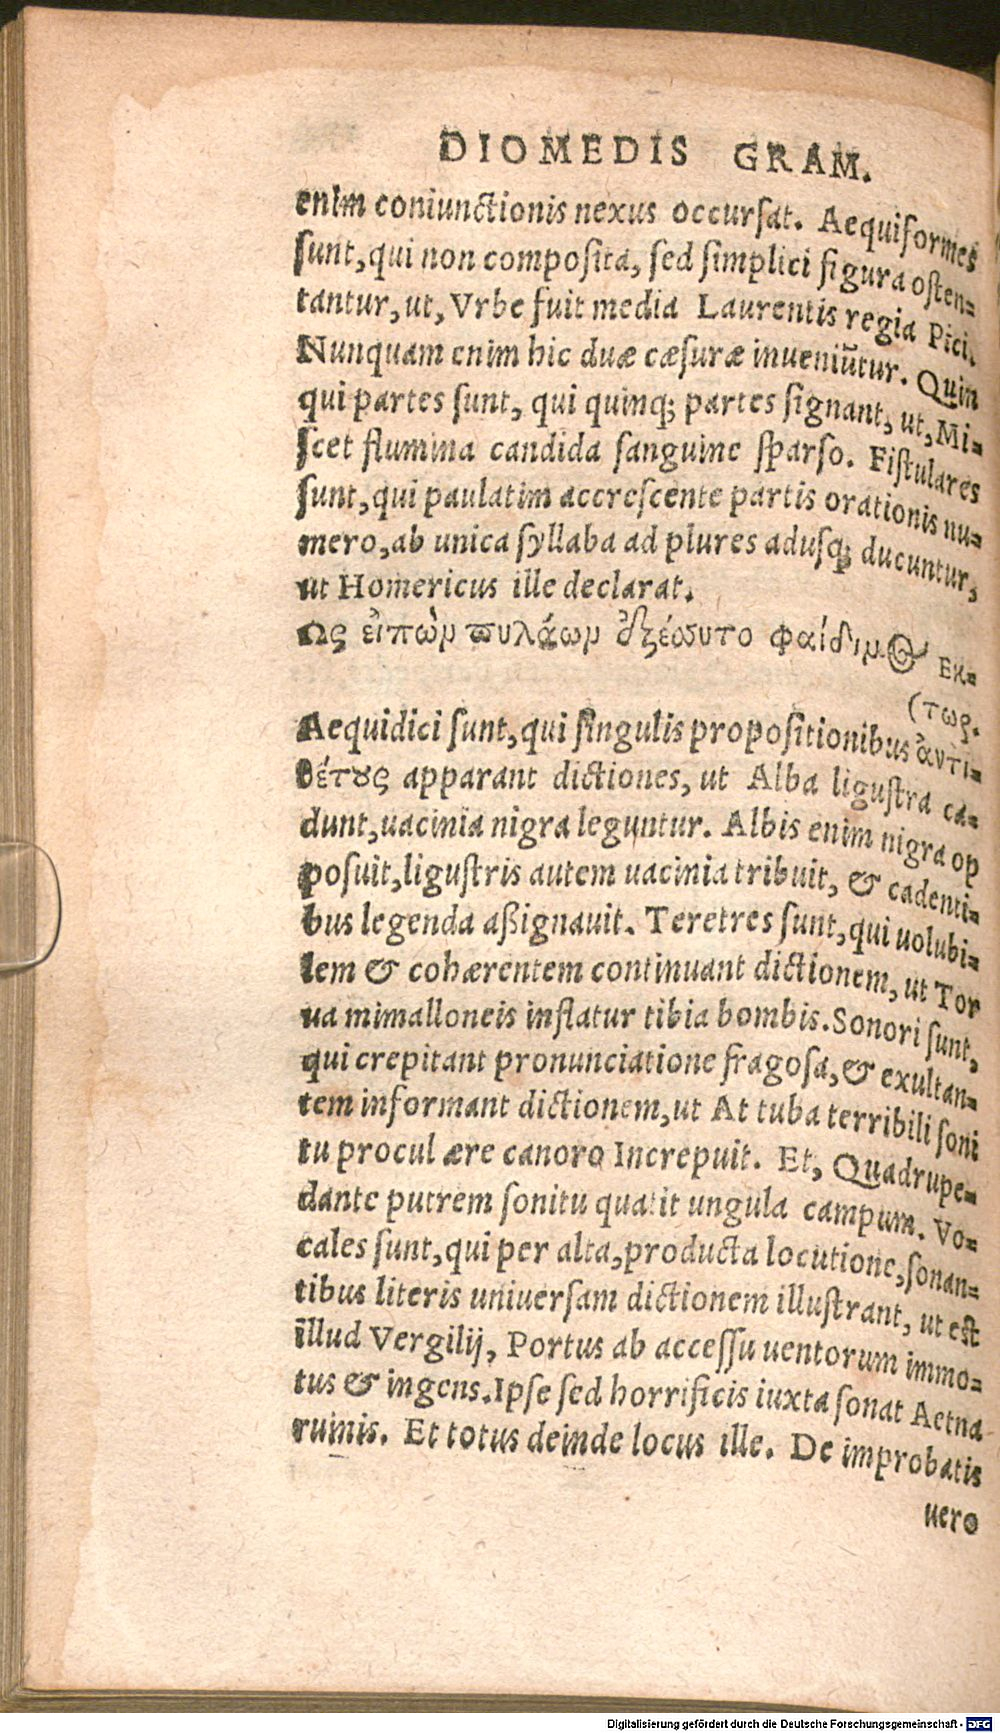 DIOMEDIS GRAM.
enim coniunctionis nexus occursat. Aequiformes
sunt, qui non composita, sed simplici figura osten=
tantur, ut, Vrbe fuit media Laurentis regia Pici.
Nunquam enim hic duæ cæsuræ inueniũtur. Quin
qui partes sunt, qui quinq; partes signant, ut, Mi=
scet flumina candida sanguine sparso. Fistulares
sunt, qui paulatim accrescente partis orationis nu=
mero, ab unica syllaba ad plures adusq; ducuntur,
ut Homericus ille declarat.
Ως εἰπὼν πυλάων ἐξέσσυτο φαίδιμος Εκ=
(τωρ.
Aequidici sunt, qui singulis propositionibus ἀντι=
θέτους apparant dictiones, ut Alba ligustra ca=
dunt, uacinia nigra leguntur. Albis enim nigra op
posuit, ligustris autem uacinia tribuit, & cadenti=
bus legenda aßignauit. Teretres sunt, qui uolubi=
lem & cohærentem continuant dictionem, ut Tor
ua mimalloneis inflatur tibia bombis. Sonori sunt,
qui crepitant pronunciatione fragosa, & exultan=
tem informant dictionem, ut At tuba terribili soni
tu procul ære canoro Increpuit. Et, Quadrupe=
dante putrem sonitu quatit ungula campum. Vo=
cales sunt, qui per alta, producta locutione, sonan=
tibus literis uniuersam dictionem illustrant, ut est
illud Vergilij, Portus ab accessu uentorum immo=
tus & ingens. Ipse sed horrificis iuxta sonat Aetna
ruinis. Et totus deinde locus ille. De improbatis
uero
Digitalisierung gefördert durch die Deutsche Forschungsgemeinschaft - DFG